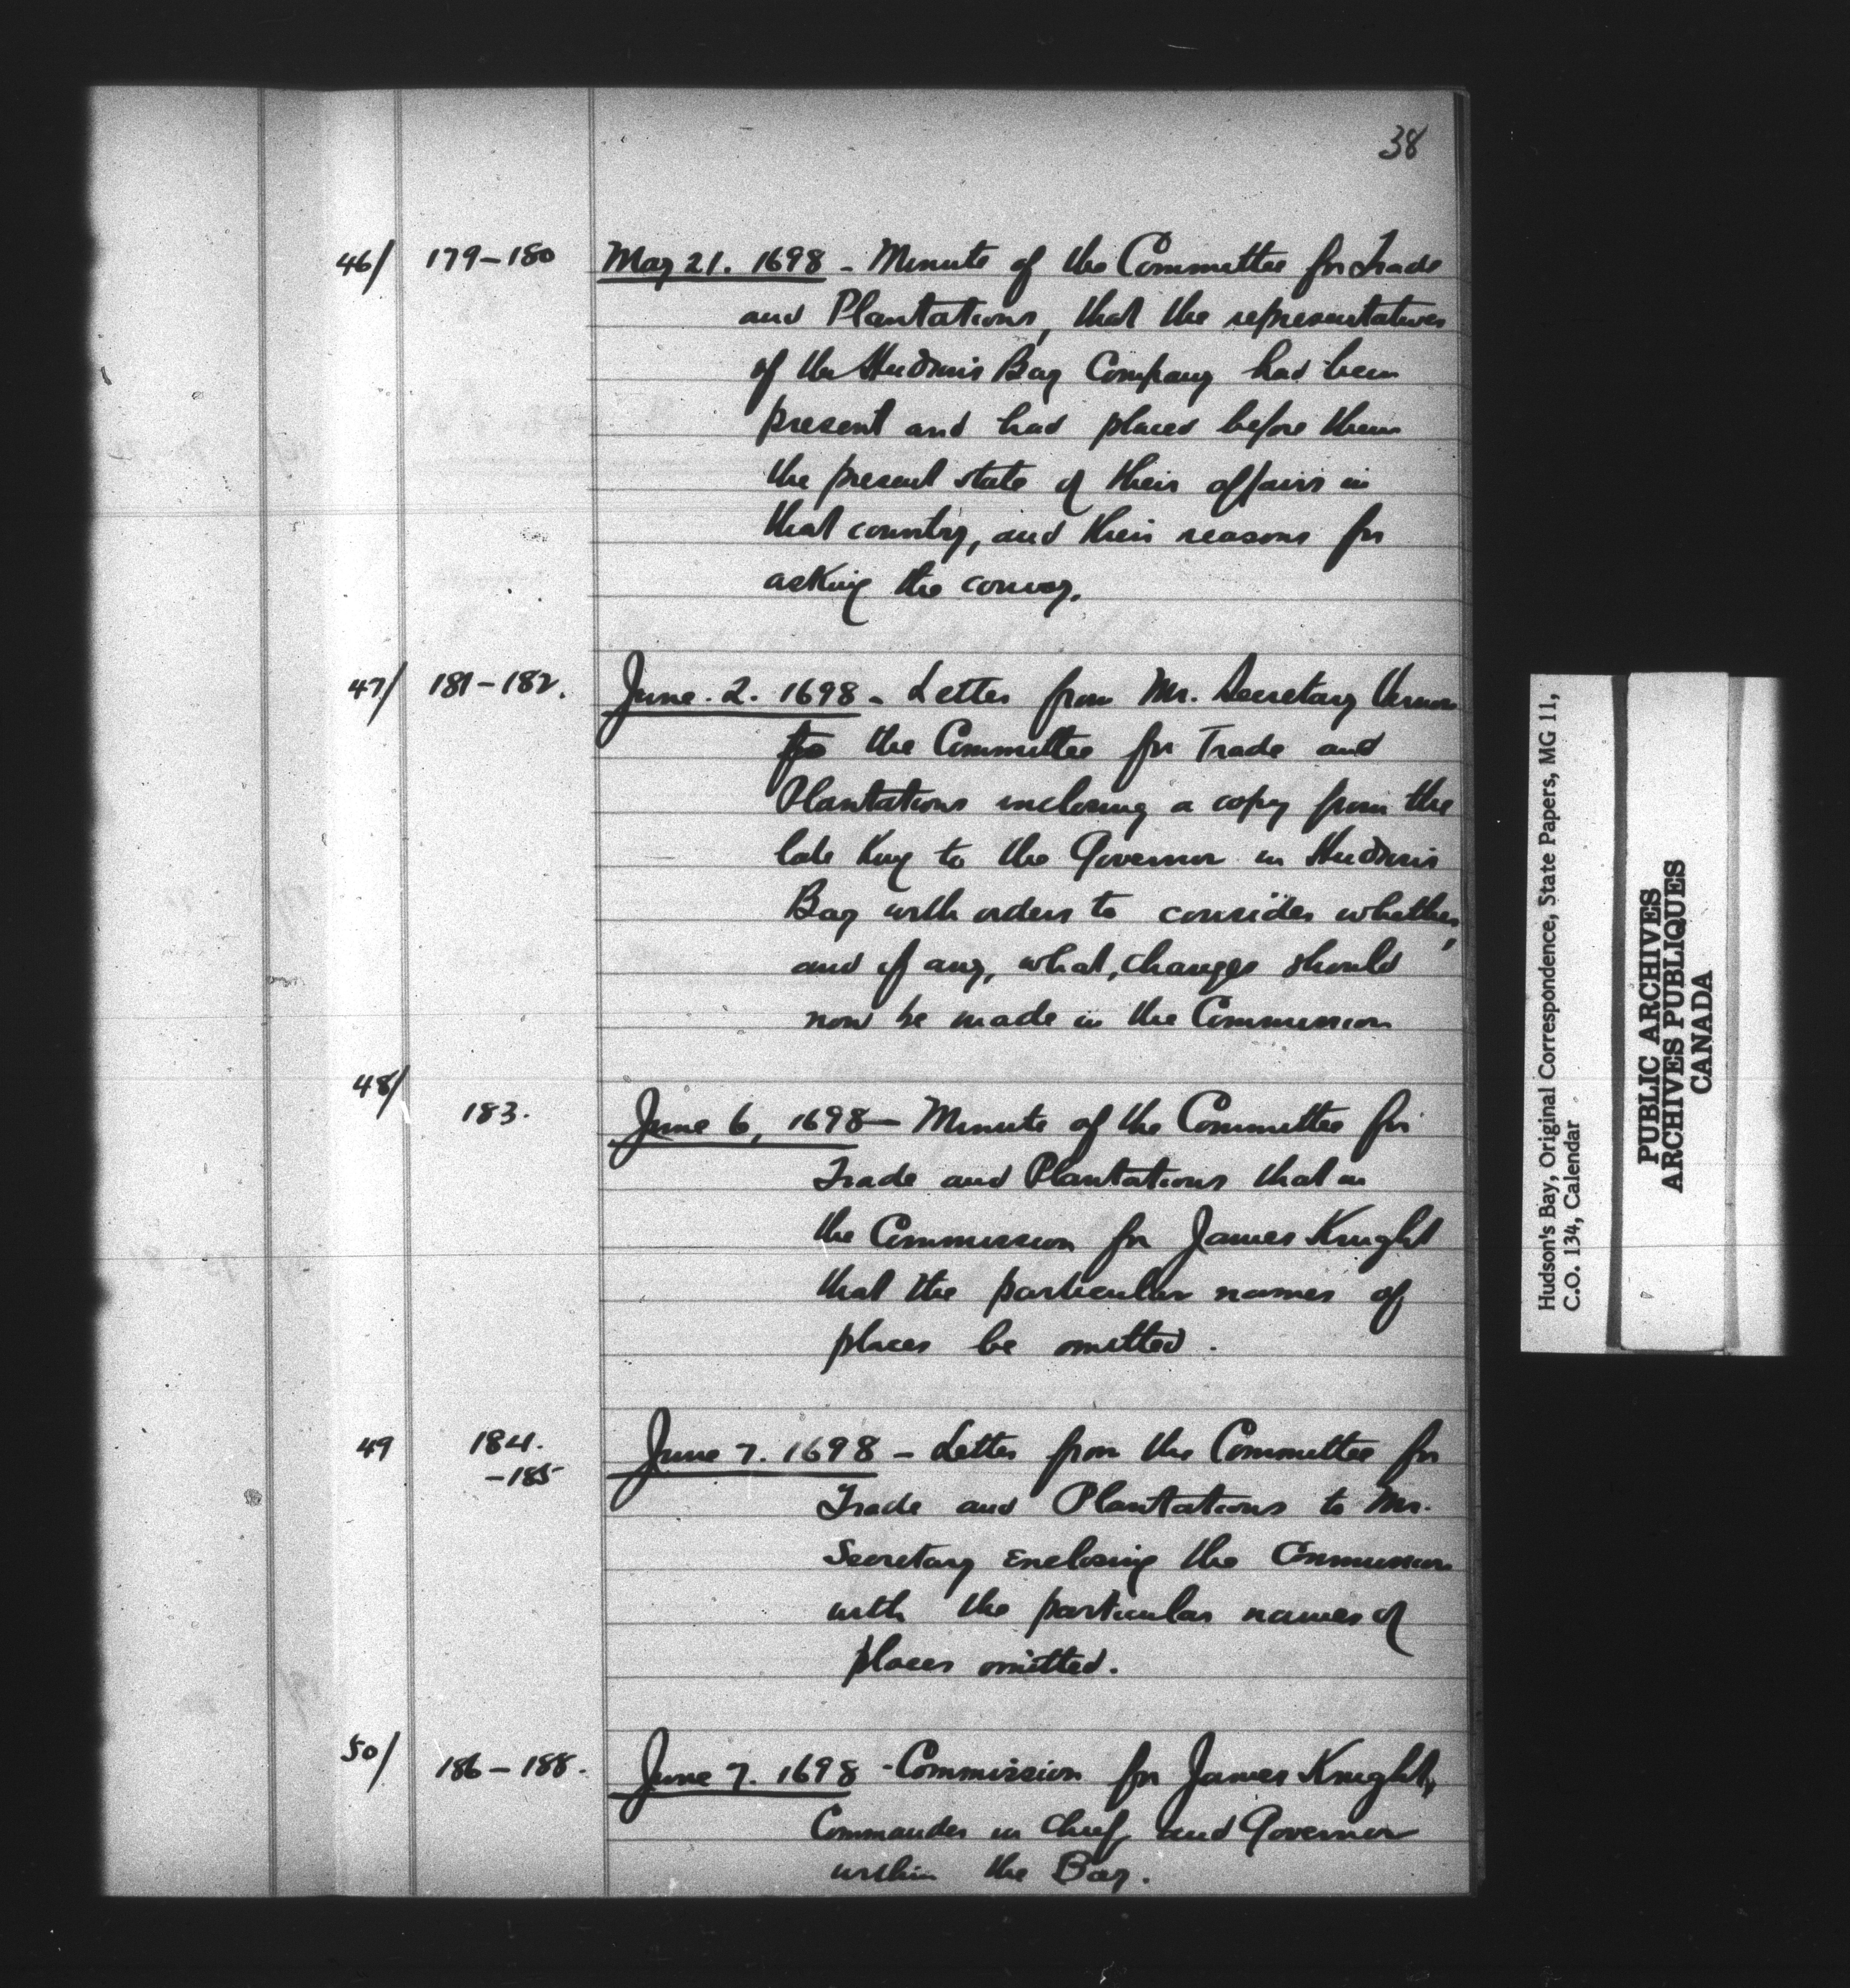 38
46/ 179-180 May 21. 1698 - Minute of the Committee for Trade
and Plantations, that the representatives
of the Hudson's Bay Company had been
present and had placed before them
the present state of their affairs in
that country, and their reasons for
asking the convoy.
47/ 181-182. June. 2. 1698 - Letter from Mr. Secretary Vernon
to the Committee for Trade and
Plantations inclosing a copy from the
late King to the Governor in Hudson's
Bay with orders to consider whether,
and if any, what, changes should
now be made in the Commission
48/
183. June 6, 1698 - Minute of the Committee for
Trade and Plantations that in
the Commission for James Knight
that the particular names of
places be omitted.
49 184. June 7. 1698 - Letter from the Committee for
-185
Trade and Plantations to Mr.
Secretary Enclosing the Commission
with the particular names of
places omitted.
50/ 186-188. June 7. 1698 - Commission for James Knight,
Commander in Chief and Governor
within the Bay.
Hudson's Bay, Original Correspondence, State Papers, MG 11,
C.O. 134, Calendar
PUBLIC ARCHIVES
ARCHIVES PUBLIQUES
CANADA